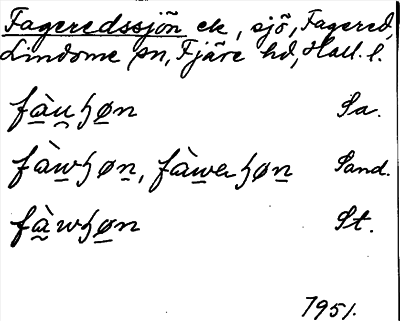 Fageredssjön ek, sjö, Fagered,
Lindome sn, Fjäre hd, Hall. l.
fàu̯ɧøn Sa.
fàwɧøn, fàweɧøn Sand.
fàwɧøn St.
1951.